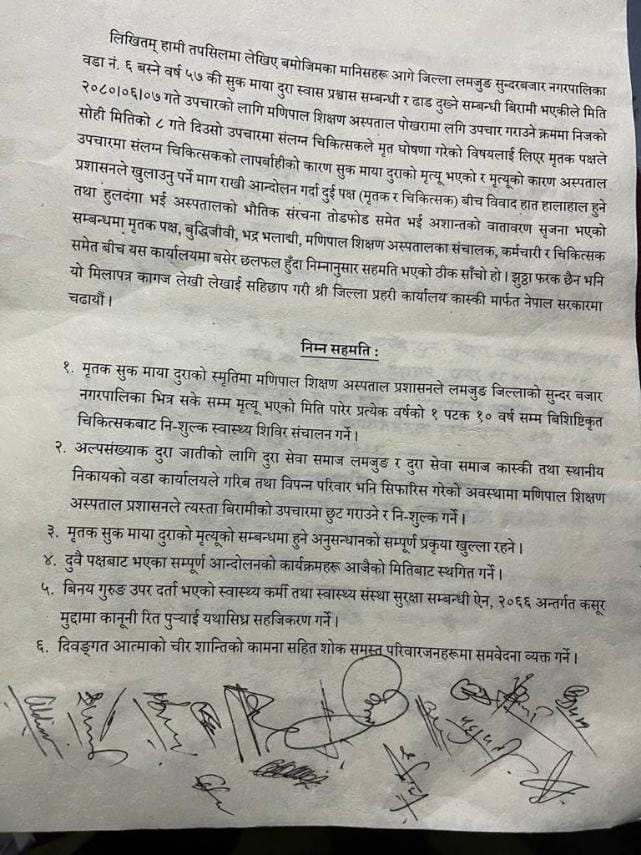 लिखितम् हामी तपसिलमा लेखिए बमोजिमका मानिसहरू आगे जिल्ला लमजुङ सुन्दरबजार नगरपालिका
वडा नं. ६ बस्ने वर्ष ५७ की सुक माया दुरा स्वास प्रश्वास सम्बन्धी र ढाड दुख्ने सम्बन्धी बिरामी भएकीले मिति
२०८०।०६।०७ गते उपचारको लागि मणिपाल शिक्षण अस्पताल पोखरामा लगि उपचार गराउने क्रममा निजको
सोही मितिको ८ गते दिउसो उपचारमा संलग्न चिकित्सकले मृत घोषणा गरेको विषयलाई लिएर मृतक पक्षले
उपचारमा संलग्न चिकित्सकको लापर्बाहीको कारण सुक माया दुराको मृत्यू भएको र मृत्यूको कारण अस्पताल
प्रशासनले खुलाउनु पर्ने माग राखी आन्दोलन गर्दा दुई पक्ष (मृतक र चिकित्सक) बीच विवाद हात हालाहाल हुने
तथा हुलदंगा भई अस्पतालको भौतिक संरचना तोडफोड समेत भई अशान्तको वातावरण सृजना भएको
सम्बन्धमा मृतक पक्ष, बुद्धिजीवी, भद्र भलाद्मी, मणिपाल शिक्षण अस्पतालका संचालक, कर्मचारी र चिकित्सक
समेत बीच यस कार्यालयमा बसेर छलफल हुँदा निम्नानुसार सहमति भएको ठीक साँचो हो। झुठ्ठा फरक छैन भनि
यो मिलापत्र कागज लेखी लेखाई सहिछाप गरी श्री जिल्ला प्रहरी कार्यालय कास्की मार्फत नेपाल सरकारमा
चढायौं।
निम्न सहमति :
१. मृतक सुक माया दुराको स्मृतिमा मणिपाल शिक्षण अस्पताल प्रशासनले लमजुङ जिल्लाको सुन्दर बजार
नगरपालिका भित्र सके सम्म मृत्यू भएको मिति पारेर प्रत्येक वर्षको १ पटक १० वर्ष सम्म बिशिष्टिकृत
चिकित्सकबाट नि-शुल्क स्वास्थ्य शिविर संचालन गर्ने।
२. अल्पसंख्याक दुरा जातीको लागि दुरा सेवा समाज लमजुङ र दुरा सेवा समाज कास्की तथा स्थानीय
निकायको वडा कार्यालयले गरिब तथा विपन्न परिवार भनि सिफारिस गरेको अवस्थामा मणिपाल शिक्षण
अस्पताल प्रशासनले त्यस्ता बिरामीको उपचारमा छुट गराउने र नि-शुल्क गर्ने।
३. मृतक सुक माया दुराको मृत्यूको सम्बन्धमा हुने अनुसन्धानको सम्पूर्ण प्रकृया खुल्ला रहने।
४. दुवै पक्षबाट भएका सम्पूर्ण आन्दोलनको कार्यक्रमहरू आजैको मितिबाट स्थगित गर्ने।
५. बिनय गुरुङ उपर दर्ता भएको स्वास्थ्य कर्मी तथा स्वास्थ्य संस्था सुरक्षा सम्बन्धी ऐन, २०६६ अन्तर्गत कसूर
मुद्दामा कानूनी रित पुर्‍याई यथासिघ्र सहजिकरण गर्ने।
६. दिवङ्गत आत्माको चीर शान्तिको कामना सहित शोक समस्त परिवारजनहरूमा समवेदना व्यक्त गर्ने।